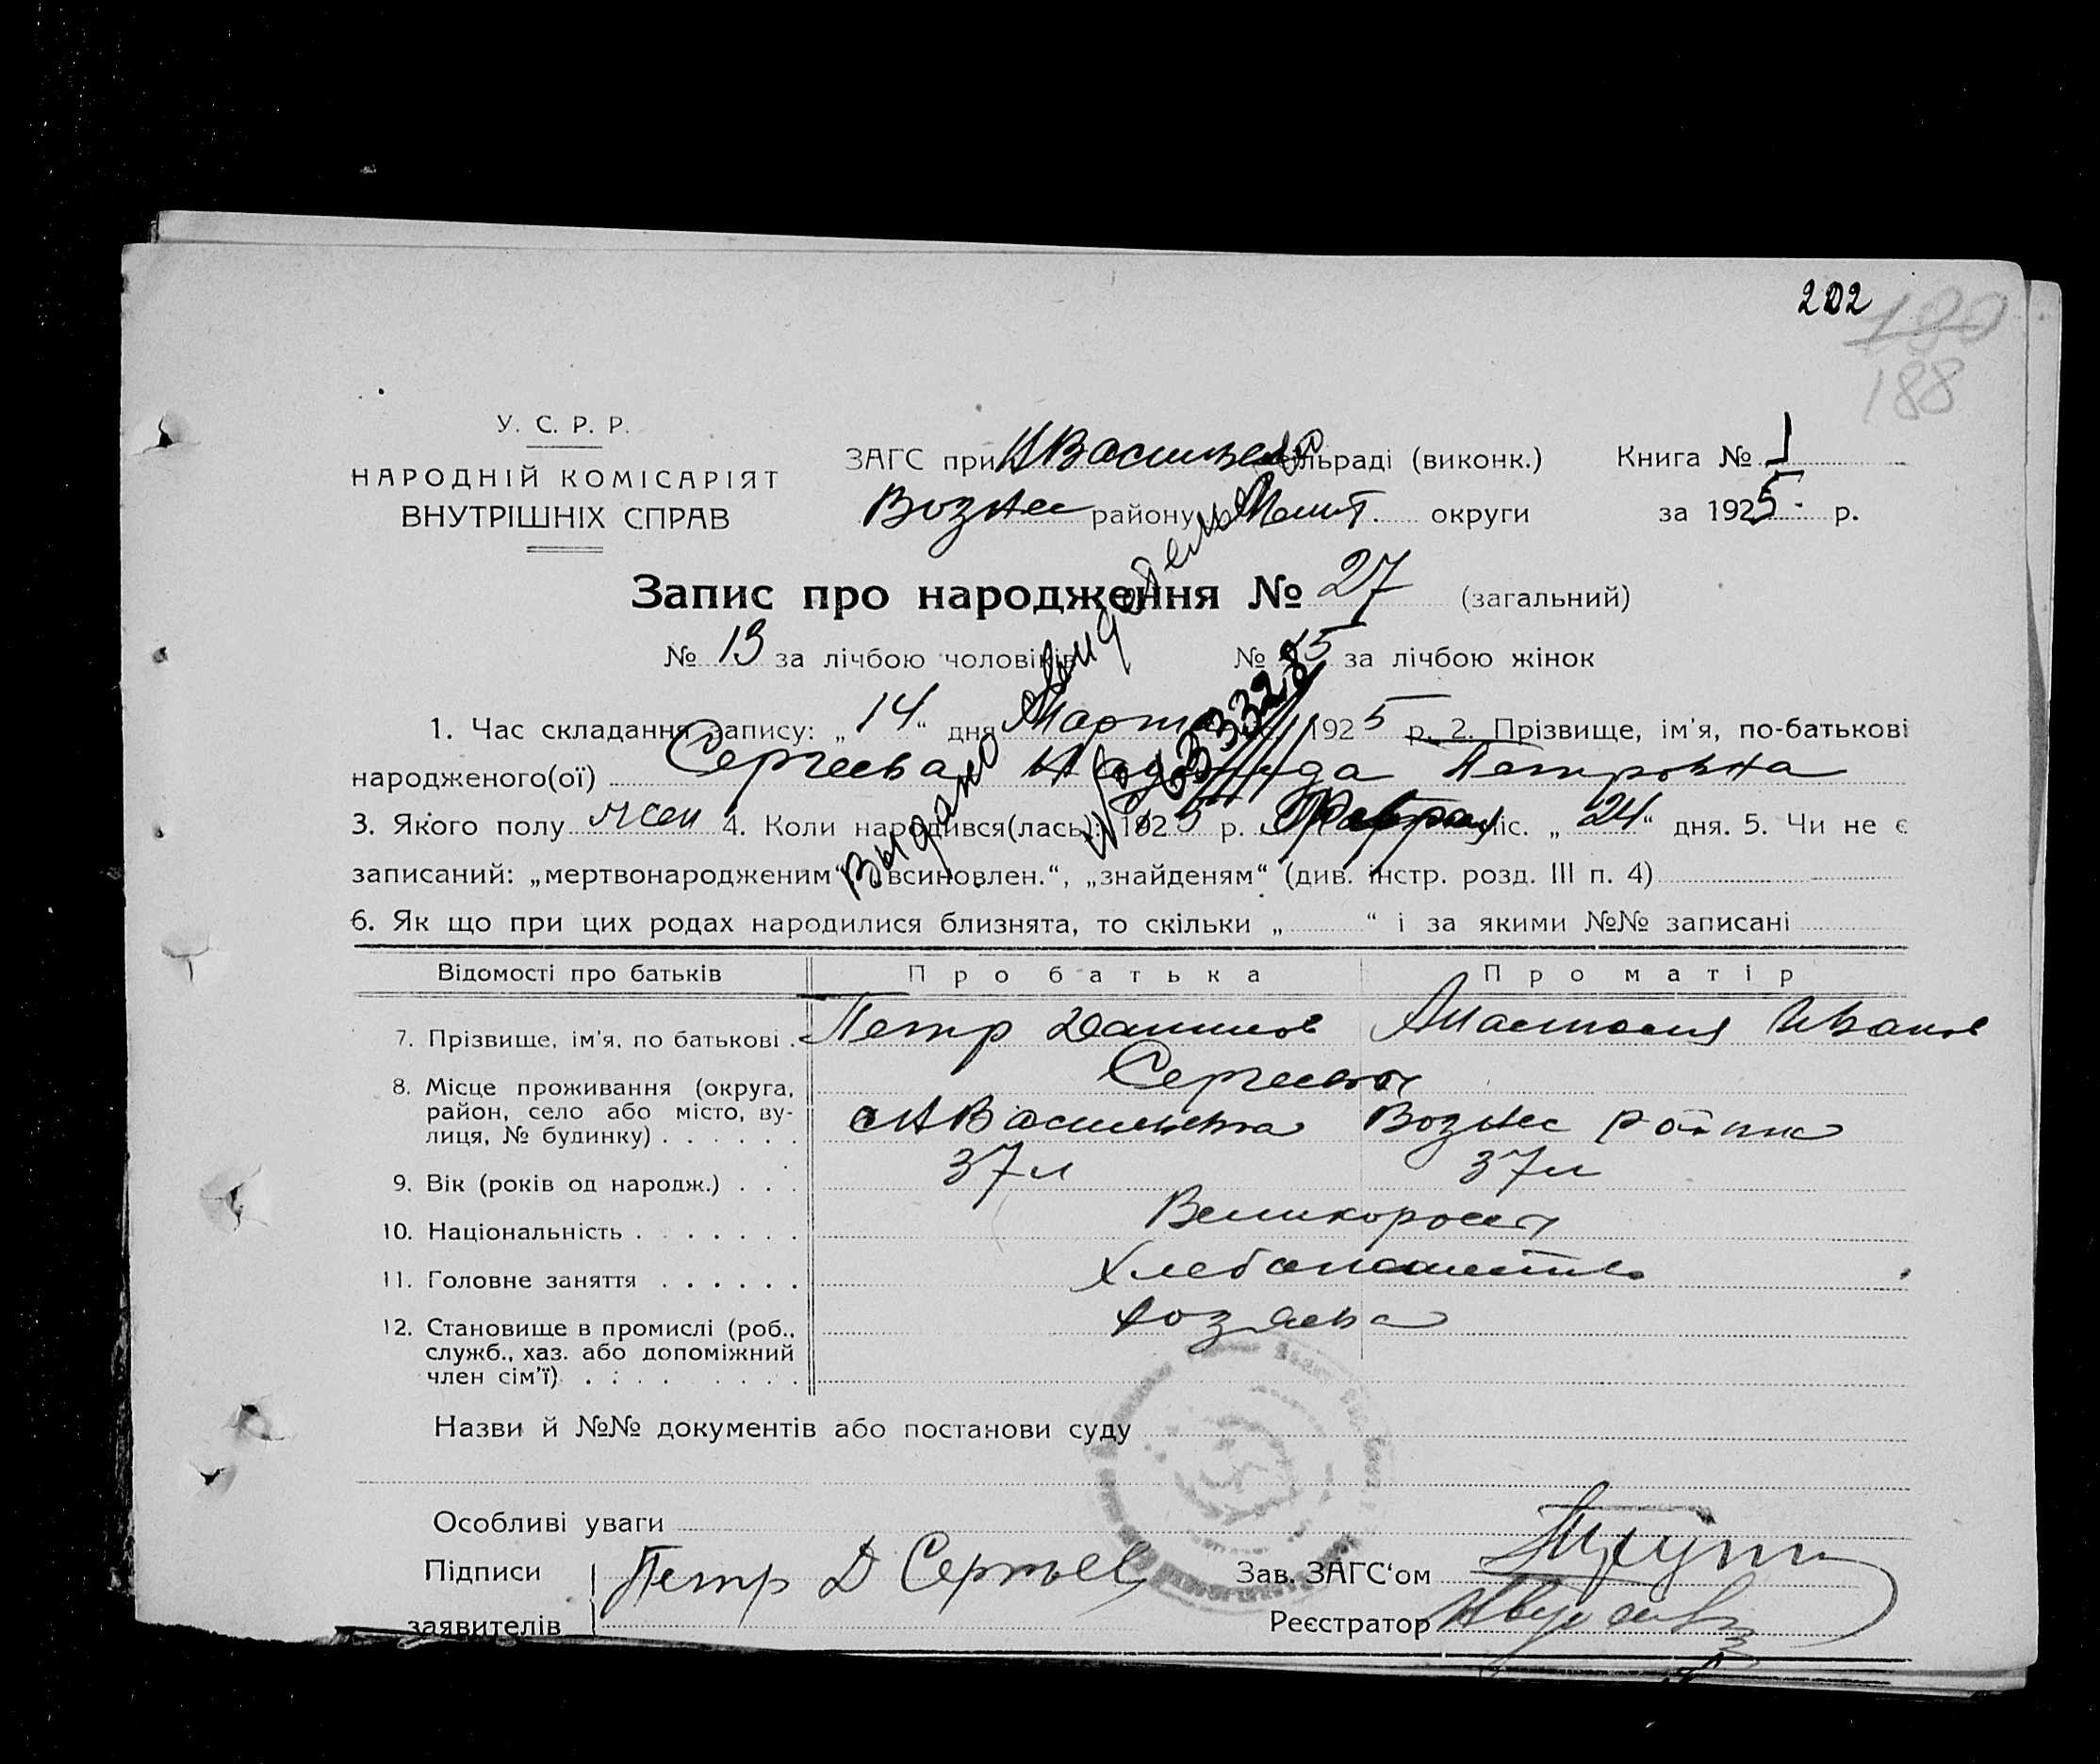 202
190
188
У. С. Р. Р.
НАРОДНІЙ КОМІСАРІЯТ
ВНУТРІШНІХ СПРАВ
ЗАГС при НВасильев сільраді (виконк.) Книга № 1
Вознес району Мелит. округи за 1925 р.
Запис про народження № 27 (загальний)
№ 13 за лічбою чоловіків № 15 за лічбою жінок
Выдано свидетельство
№ 633328
1. Час складання запису: „14“ дня Марта 1925 р. 2. Прізвище, ім'я, по-батькові
народженого(ої) Сергеева Надежда Петровна
3. Якого полу жен 4. Коли народився(лась): 1925 р. Февраля міс. „24“ дня. 5. Чи не є
записаний: „мертвонародженим“, „всиновлен.“, „знайденям“ (див. інстр. розд. III п. 4)
6. Як що при цих родах народилися близнята, то скільки „ “ і за якими №№ записані
Відомості про батьків Про батька Про матір
7. Прізвище, ім'я, по батькові . Петр Данилов Анастасия Иванов
Сергеевы
8. Місце проживання (округа,
район, село або місто, ву-
лиця, № будинку) . . . . . . сНВасильевка Вознес район
9. Вік (років од народж.) . . . 37 л 37 л
10. Національність . . . . . . . Великоросы
11. Головне заняття . . . . . . Хлебопашество
12. Становище в промислі (роб.,
служб., хаз. або допоміжний
член сім'ї) . . . . . . . . хозяева
Назви й №№ документів або постанови суду
Особливі уваги
Підписи
заявителів
Петр Д Сергеев
Зав. ЗАГС'ом
Реєстратор